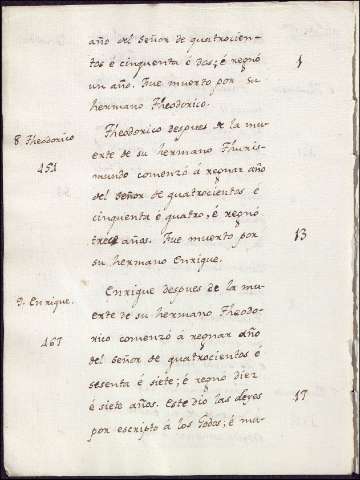 año del Señor de quatrocien-
tos é cinquenta é dos; é regnó
1
un año. Fue muerto por su
hermano Theodorico.
8 Theodorico
Theodorico despues de la mu-
erte de su hermano Thuris-
451
mundo comenzó á regnar año
del Señor de quatrocientos e
cinquenta é quatro, é regnó
trece años. Fue muerto por
13
su hermano Enrique.
9. Enrique.
Enrique despues de la mu-
erte de su hermano Theodo-
467
rico comenzó á regnar año
del Señor de quatrocientos é
sesenta é siete; é regnó diez
é siete años. Este dió las Leyes
17
por escripto á los Godos; é mu-